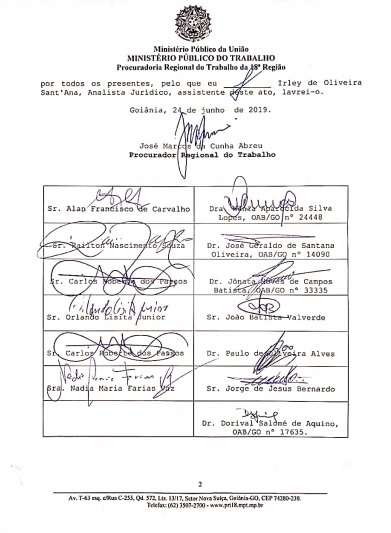 Ministério Público da União
MINISTÉRIO PÚBLICO DO TRABALHO
Procuradoria Regional do Trabalho da 18ª Região
por todos os presentes, pelo que eu ________ Irley de Oliveira
Sant'Ana, Analista Jurídico, assistente deste ato, lavrei-o.
Goiânia, 24 de junho de 2019.
José Marcos da Cunha Abreu
Procurador Regional do Trabalho
Sr. Alan Francisco de Carvalho
Dra. Aparecida Silva
Lopes, OAB/GO nº 24448
Sr. Railton Nascimento Souza
Dr. José Geraldo de Santana
Oliveira, OAB/GO nº 14090
Sr. Carlos Roberto dos Passos
Dr. Jônata Neves de Campos
Batista, OAB/GO nº 33335
Orlando Lisita Junior
Sr. Orlando Lisita Junior
Sr. João Batista Valverde
Sr. Carlos Roberto dos Passos
Dr. Paulo de Oliveira Alves
Sra. Nadia Maria Farias Vaz
Sr. Jorge de Jesus Bernardo
Dr. Dorival Salomé de Aquino,
OAB/GO nº 17635.
2
Av. T-63 esq. c/Rua C-253, Qd. 572, Lts. 13/17, Setor Nova Suíça, Goiânia-GO, CEP 74280-230.
Telefax: (62) 3507-2700 - www.prt18.mpt.mp.br